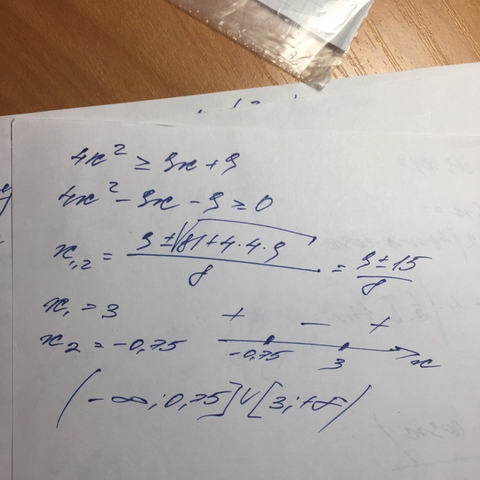 4x² ≥ 9x + 9
4x² - 9x - 9 ≥ 0
x₁,₂ = (9 ± √(81 + 4 · 4 · 9)) / 8 = (9 ± 15) / 8
x₁ = 3
+ - +
x₂ = -0,75
-0,75 3 x
(-∞; 0,75] ∪ [3; +∞)